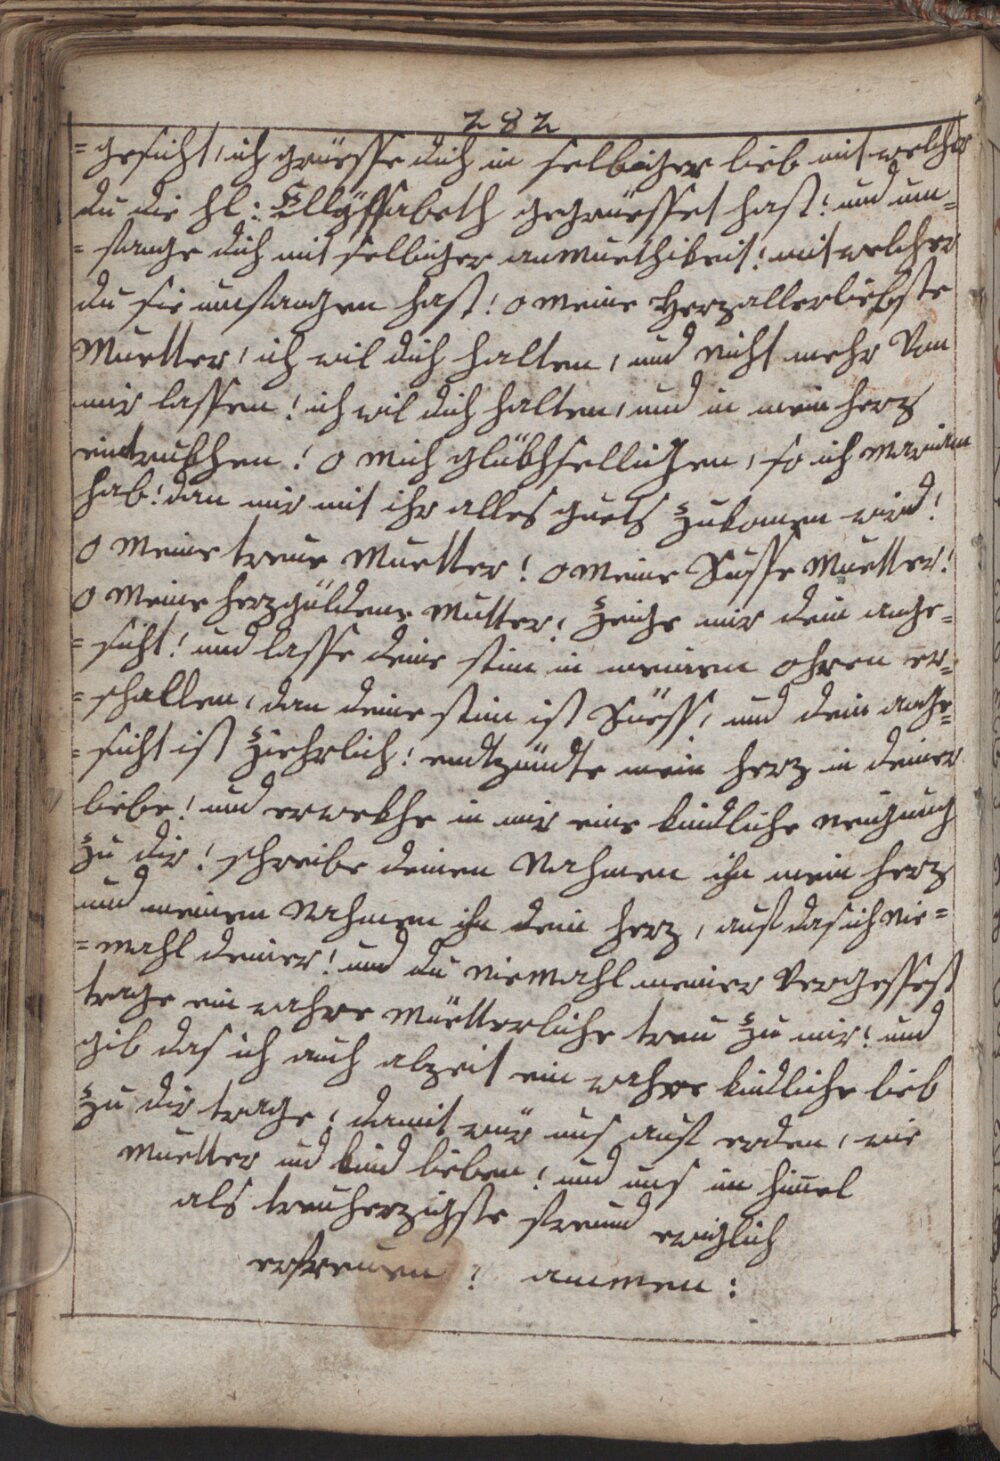 282
= gesicht, ich grüesse dich in selbiger lieb mit welcher
du die hl: Ellÿssabeth gegrüesset hast! und um=
= fange dich mit selbiger anmuethikeit! mit welcher
du sie umfangen hast! o meine Herzallerliebste
Muetter, ich wil dich halten, und nicht mehr Von
mir lassen! ich wil dich halten, und in mein herz
eintrukhen! o mich glükhselligen, so ich mariam
hab! dan mir mit ihr alles guets zukomen wird!
o meine treue Muetter! o meine Süsse Muetter!
o meine herzgüldene Mutter! zeige mir dein ange=
= sicht! und lasse deine stim in meinem ohren er=
= schallen, dan deine stim ist Süess, und dein ange=
= sicht ist ziehrlich! endtzündte mein herz in deiner
liebe! und erwekhe in mir eine kindliche neigung
zu dir! schreibe deinen Nahmen ihn mein herz
und meinem Nahmen ihn dein herz, auf das ich nie=
= mahl deiner! und du niemahl meiner Vergessest
trage ein wahre müetterliche treu zu mir! und
gib das ich auch alzeit ein wahre kindliche lieb
zu dir trage! damit wür uns auf erden, wie
Muetter und kind lieben! und uns im himel
als treuherzigste freund ewiglich
erfreuen! ammen: